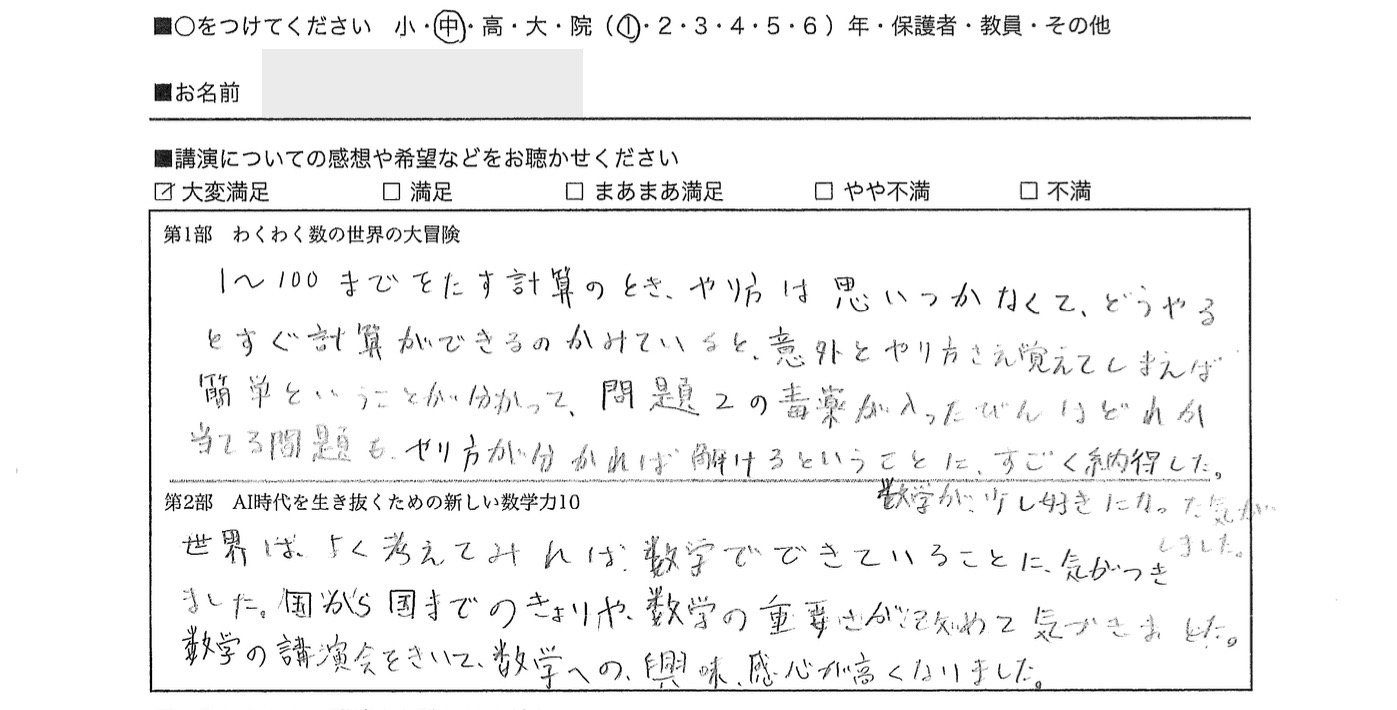 ■○をつけてください　小・中・高・大・院（1・2・3・4・5・6）年・保護者・教員・その他
■お名前
■講演についての感想や希望などをお聴かせください
☑ 大変満足　□ 満足　□ まあまあ満足　□ やや不満　□ 不満
第1部　わくわく数の世界の大冒険
1〜100までをたす計算のとき、やり方は思いつかなくて、どうやる
とすぐ計算ができるのかみていると、意外とやり方さえ覚えてしまえば
簡単ということが分かって、問題2の毒薬が入ったびんはどれか
当てる問題も、やり方が分かれば解けるということに、すごく納得した。
数学が、少し好きになった気が
しました。
第2部　AI時代を生き抜くための新しい数学力10
世界は、よく考えてみれば、数学でできていることに、気がつき
ました。国から国までのきょりや、数学の重要さが改めて気づきました。
数学の講演会をきいて、数学への、興味、感心が高くなりました。